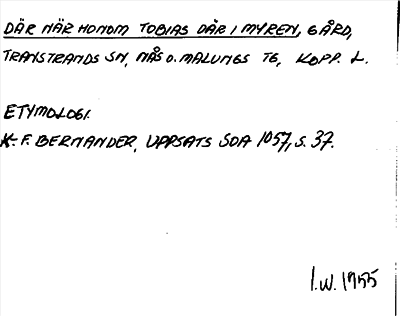 DÄR NÄR HONOM TOBIAS DÄR I MYREN, GÅRD,
TRANSTRANDS SN, NÅS O. MALUNGS TG, KOPP. L.
ETYMOLOGI.
K. F. BERNANDER, UPPSATS SOA 1057, S. 37.
I.W. 1955